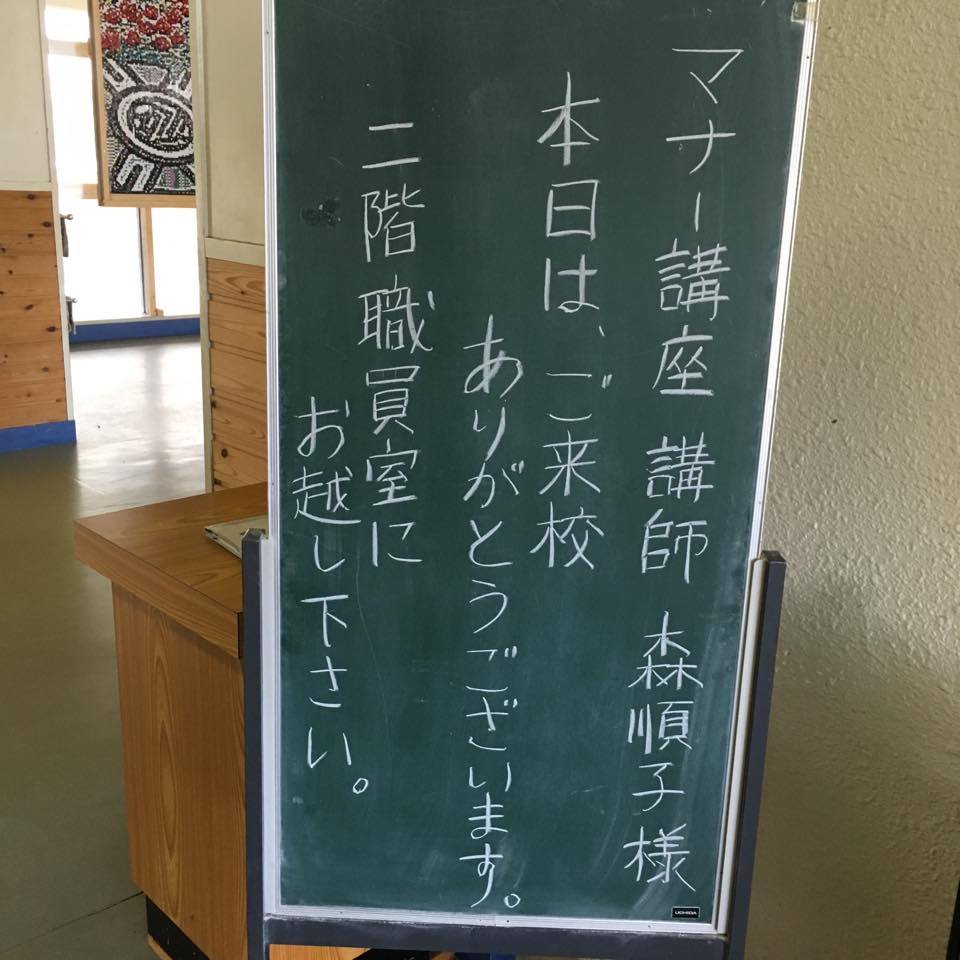 マナー講座 講師 森順子様
本日は、ご来校
ありがとうございます。
二階職員室に
お越し下さい。
UCHIDA